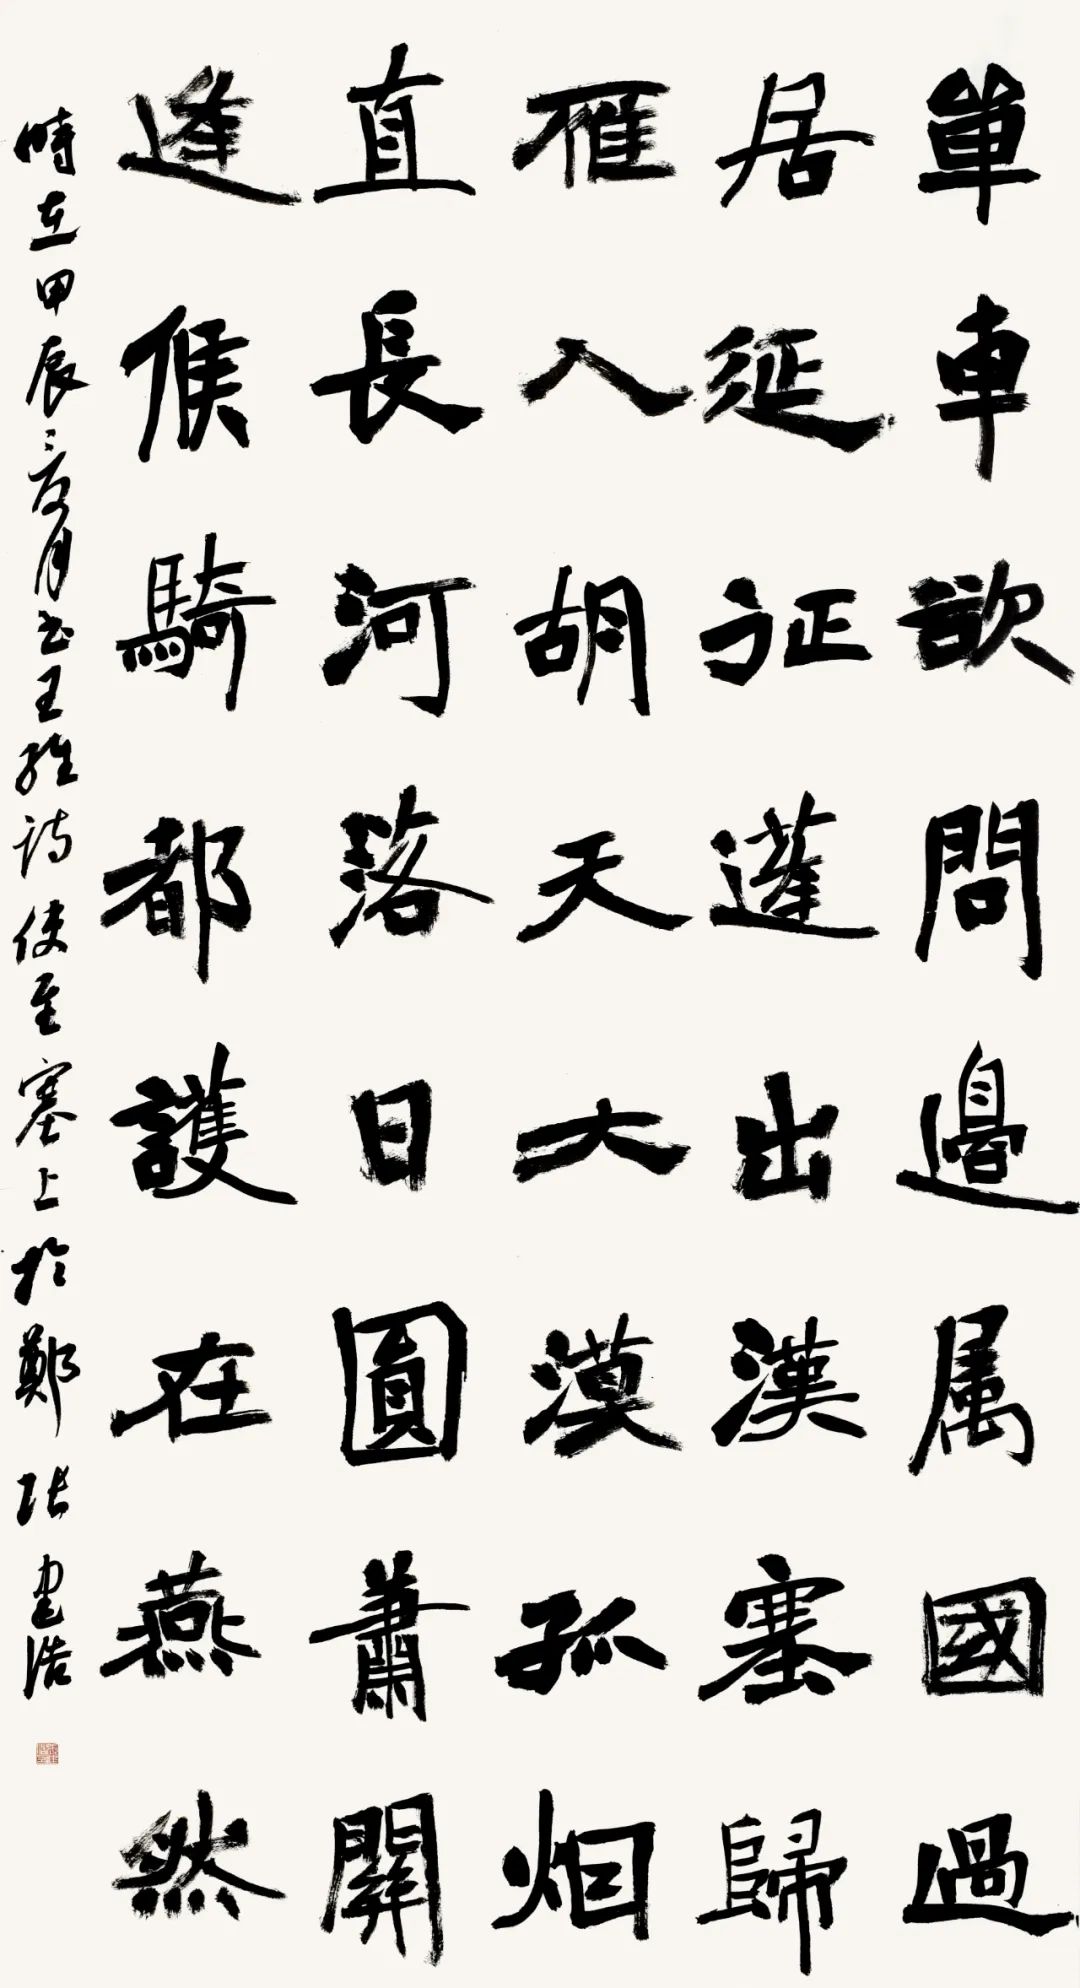 單車欲問邊属國過
居延征蓬出漢塞歸
雁入胡天大漠孤烟
直長河落日圓蕭關
逢候騎都護在燕然
時在甲辰夏月书王維詩使至塞上於鄭張建浩